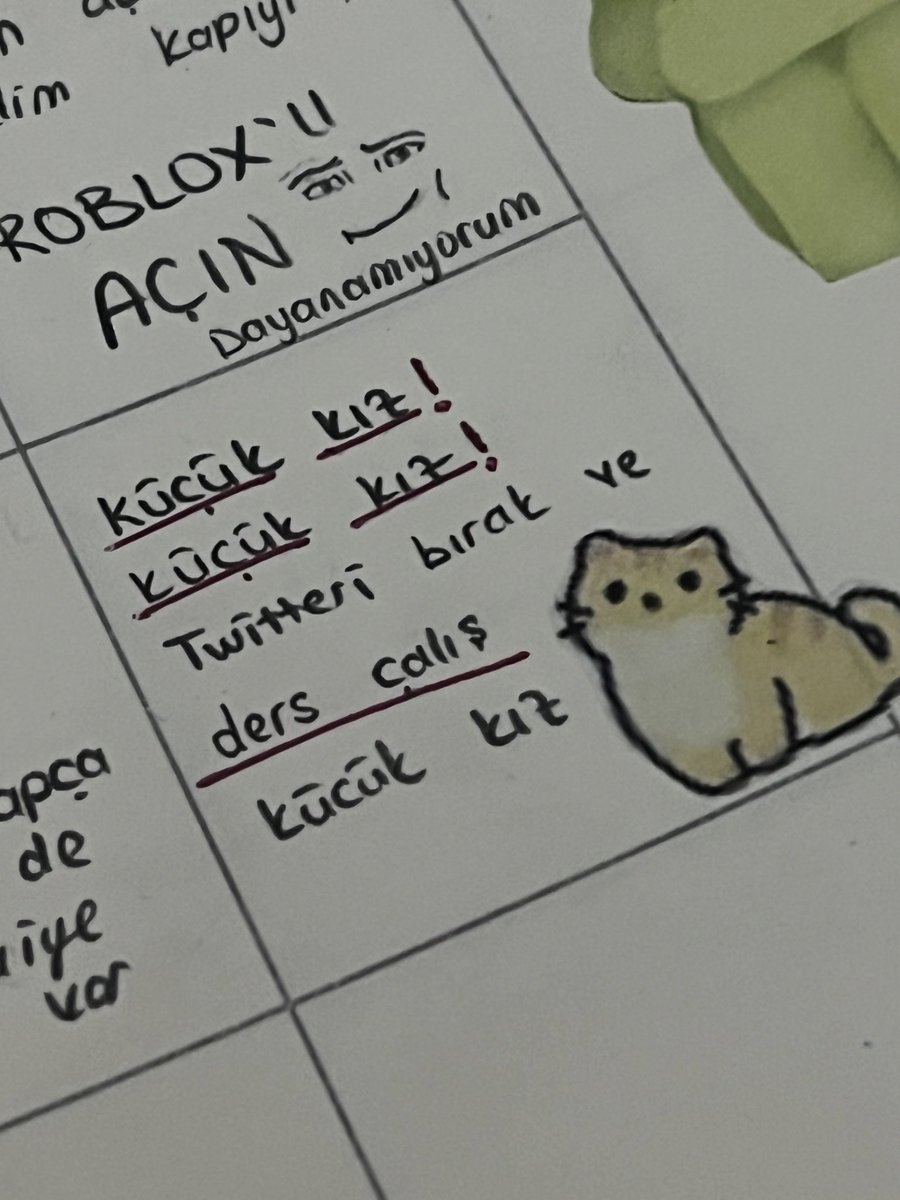 kapıyı
ROBLOX'U
AÇIN
Dayanamıyorum
küçük kız!
küçük kız!
Twitteri bırak ve
ders çalış
kücük kız
de
var